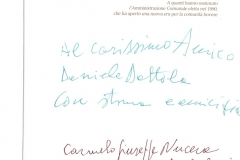 A quanti hanno sostenuto
l'Amministrazione Comunale eletta nel 1990,
che ha aperto una nuova era per la comunità bovese
Al carissimo Amico
Daniele Dattola
Con stima e amicizia
Carmelo Giuseppe Nucera